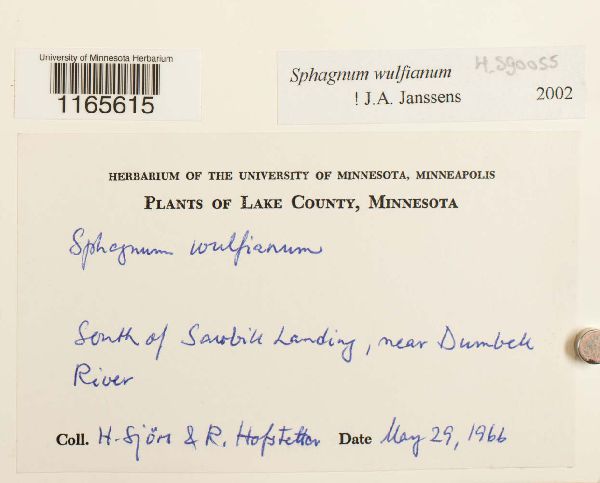 University of Minnesota Herbarium
1165615
Sphagnum wulfianum
H_Sg0055
! J.A. Janssens
2002
HERBARIUM OF THE UNIVERSITY OF MINNESOTA, MINNEAPOLIS
PLANTS OF LAKE COUNTY, MINNESOTA
Sphagnum wulfianum
South of Sawbill Landing, near Dumbell
River
Coll. H. Sjörs & R. Hofstetter Date May 29, 1966